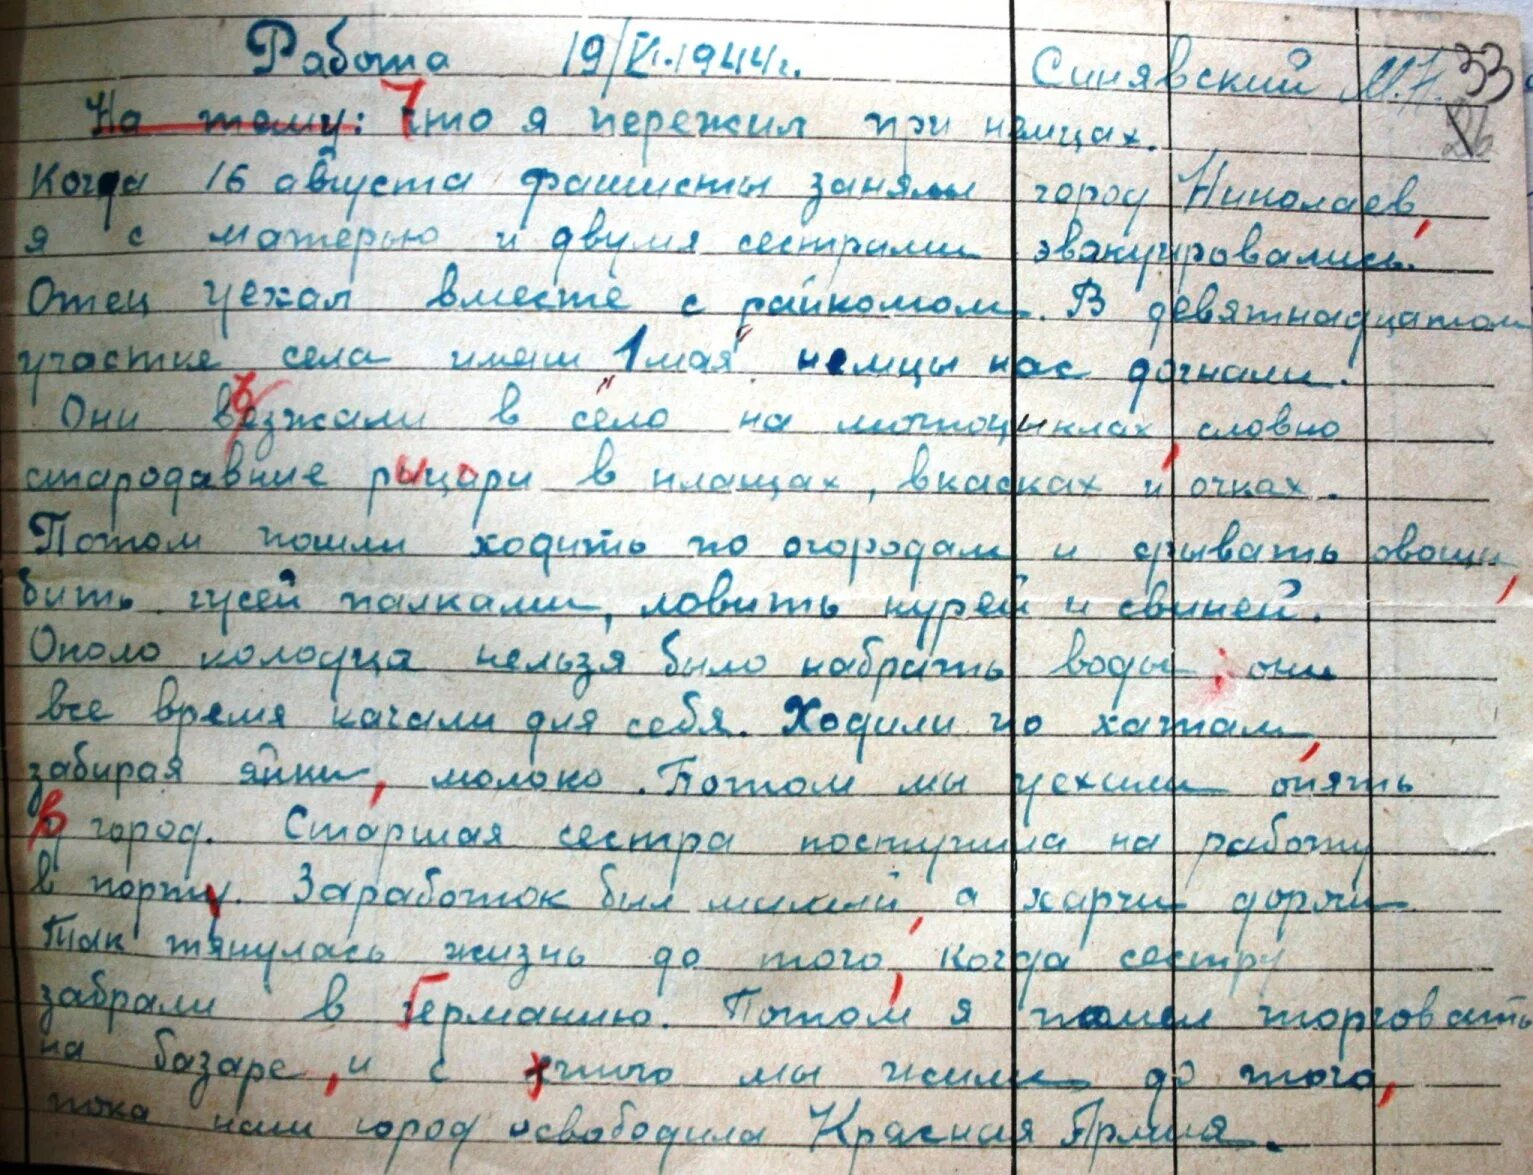 Работа 19/VI.1944 г. Синявский М.Н. 33
На тему: Что я пережил при немцах. 26
Когда 16 августа фашисты заняли город Николаев,
я с матерью и двумя сестрами эвакуировались.
Отец уехал вместе с райкомом. В девятнадцатом
участке села имени "1 мая" немцы нас догнали.
Они въезжали в село на мотоциклах, словно
стародавние рыцари в плащах, в касках и очках.
Потом пошли ходить по огородам и срывать овощи,
бить гусей палками, ловить курей и свиней.
Около колодца нельзя было набрать воды: они
все время качали для себя. Ходили по хатам,
забирая яйки, молоко. Потом мы уехали опять
в город. Старшая сестра поступила на работу
в порту. Заработок был малый, а харчи дороги.
Так тянулась жизнь до того, когда сестру
забрали в Германию. Потом я пошел торговать
на базаре, и с этого мы жили до того,
пока наш город освободила Красная Армия.